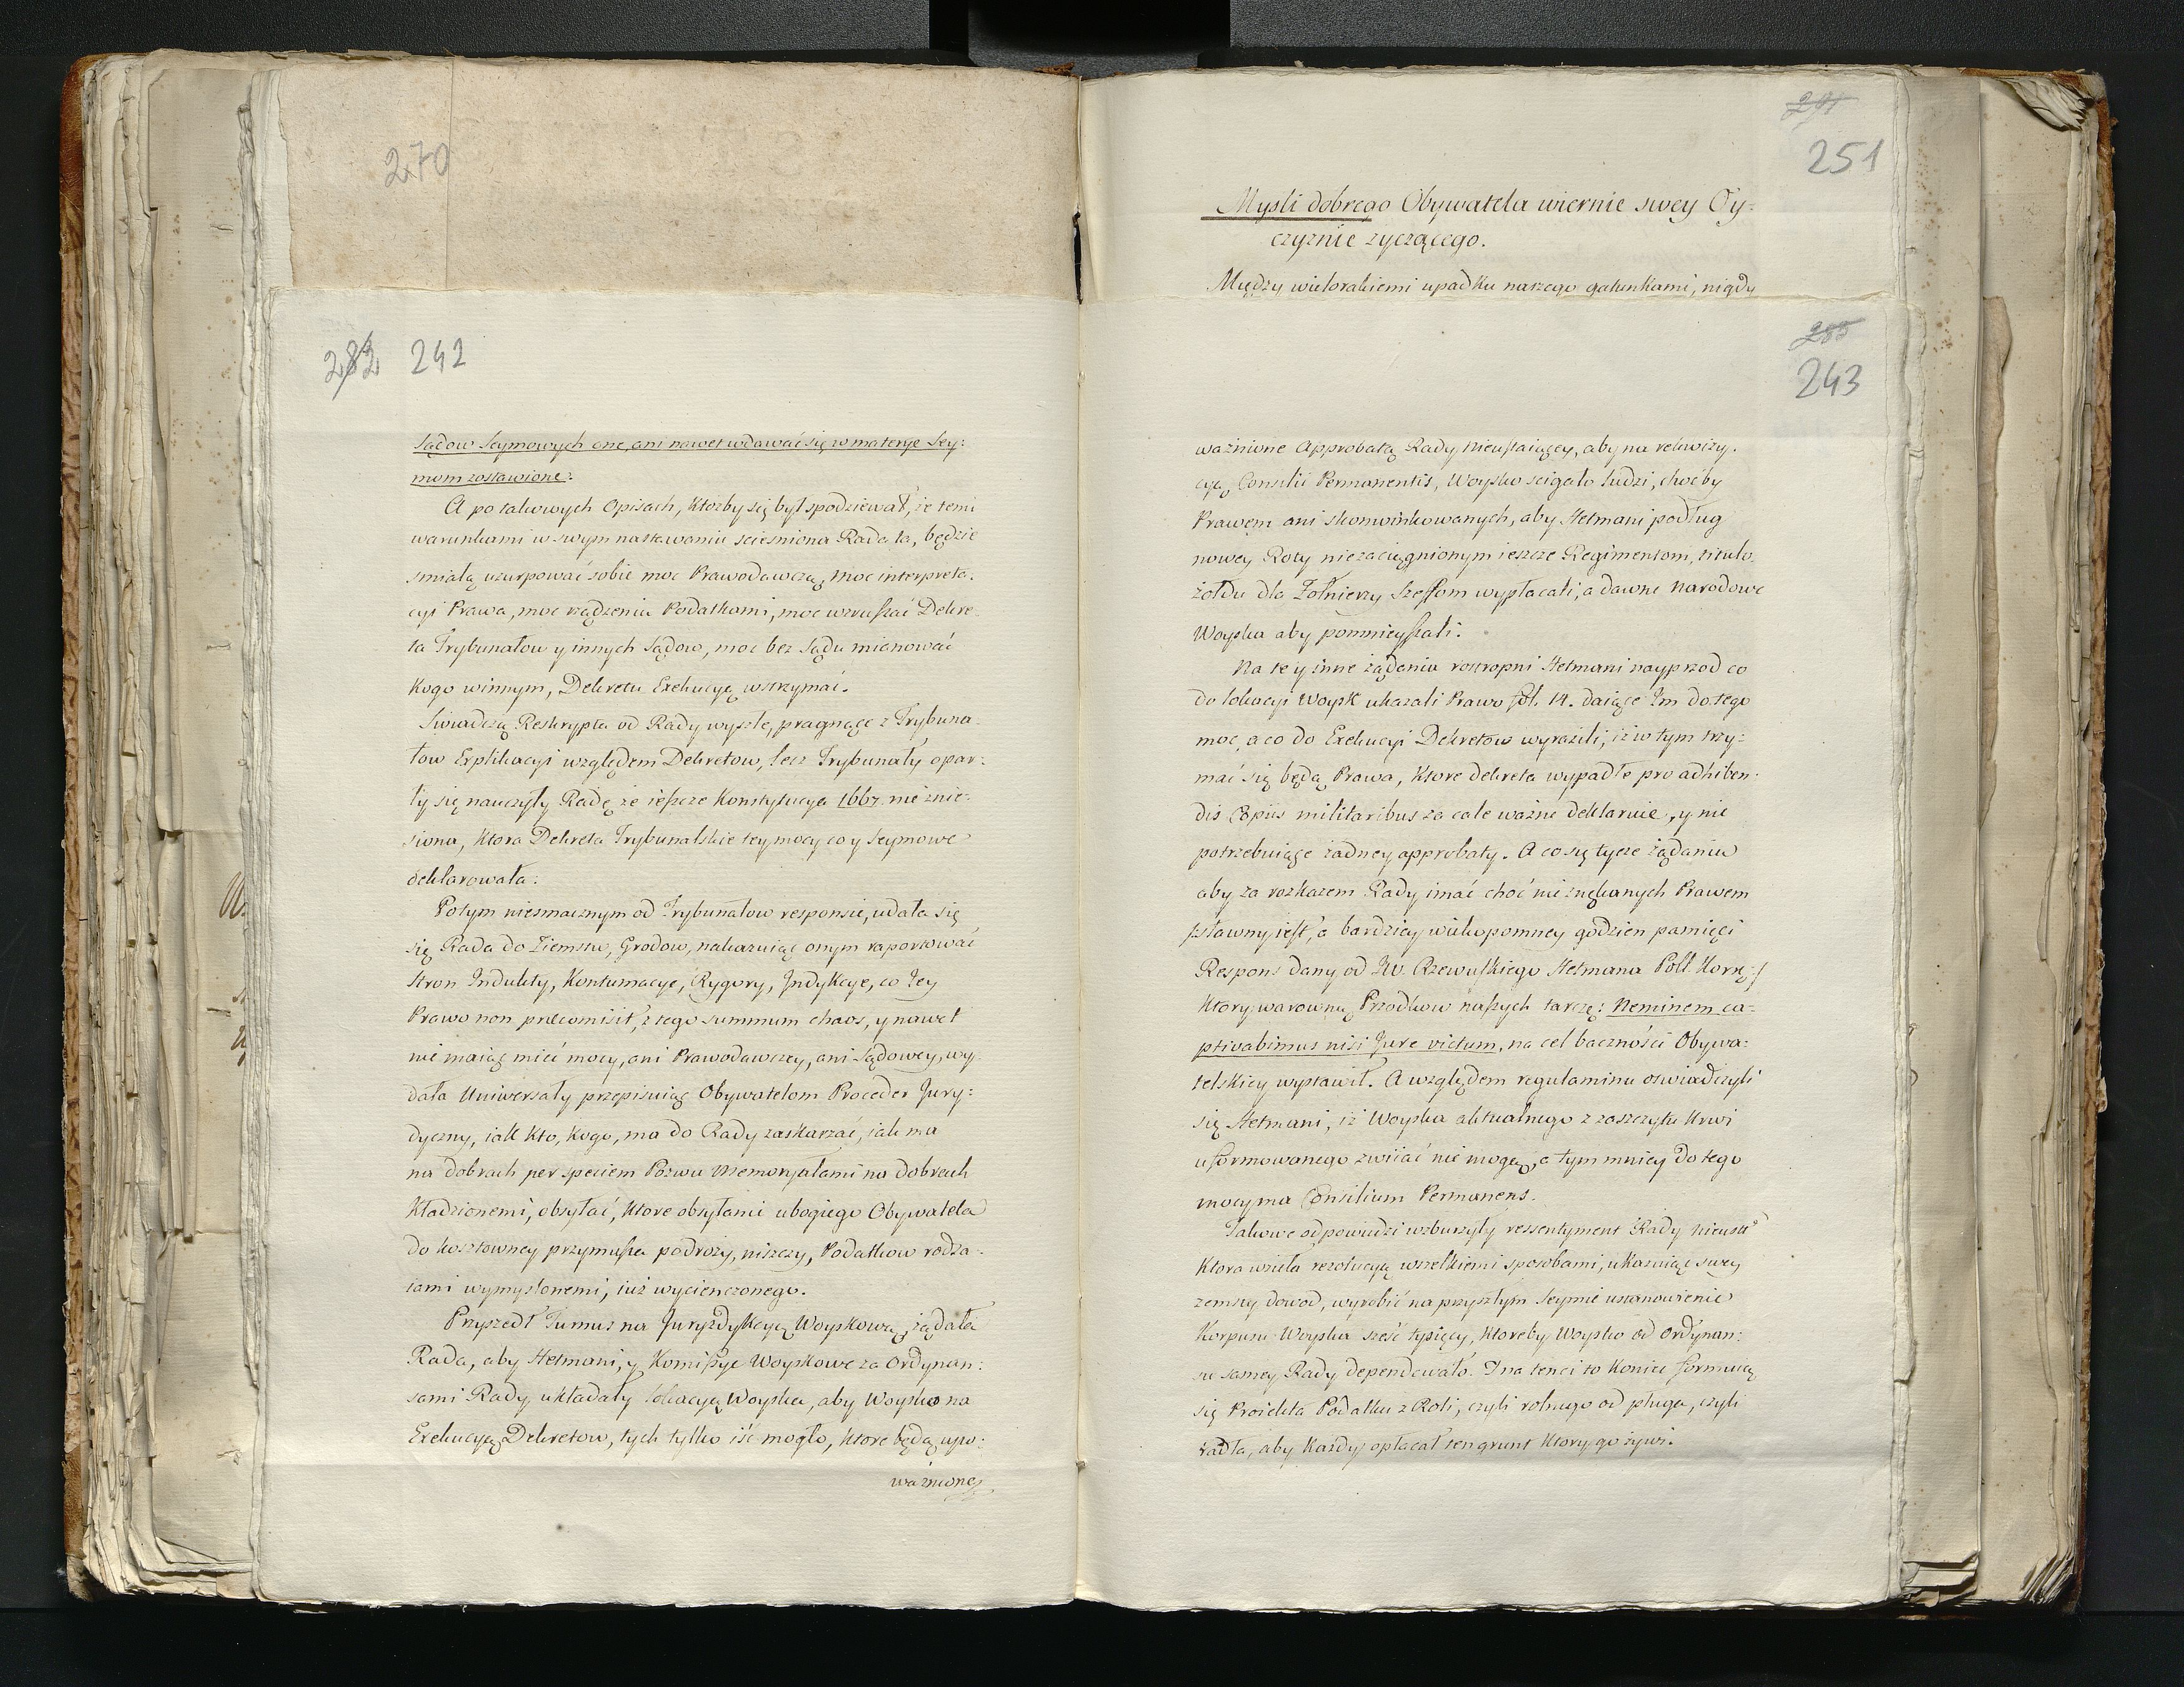 270
282 242
Sądow Seymowych one, ani nawet wdawać się w materye Sey:
mom zostawione:
A po takowych Opisach, ktożby się był spodziewał, że temi
warunkami w swym nastawaniu scieśniona Rada ta, będzie
smiałą uzurpować sobie moc Prawodawczą, moc interpreta.
cyi Prawa, moc rządzenia Podatkami, moc wzruszać Dekre-
ta Trybunałow y innych Sądow, moc bez Sądu mianować
kogo winnym, Dekretu Exekucyą wstrzymać.
Swiadczą Reskrypta od Rady wyszłe, pragnące z Trybuna-
łow Explikacyi względem Dekretow, lecz Trybunały opar:
ły się nauczyły Radę że ieszcze Konstytucya 1667. nie znie:
siona, ktora Dekreta Trybunalskie tey mocy co y Seymowe
deklarowała:
Po tym niesmacznym od Trybunałow responsie, udała się
się Rada do Ziemstw, Grodow, nakazuiąc onym raportować
stron Indukty, Kontumacye, Rygory, Indykcye, co Jey
Prawo non præcomisit, z tego summum chaos, y nawet
nie maiąc mieć mocy, ani Prawodawczey, ani Sądowey, wy-
dała Uniwersały przepisuiąc Obywatelom Proceder Jury:
dyczny, iak kto, kogo, ma do Rady zaskarżać, iak ma
na dobrach per speciem Pozwu Memoryałami na dobrach
kładzionemi, obsyłać, ktore obsyłanie ubogiego Obywatela
do kosztowney przymusza podroży, niszczy, Podatkow rodza-
iami wymyslonemi, iuż wycienczonego.
Przyszedł Turnus na Juryzdykcyą Woyskową, żądała
Rada, aby Hetmani, y Komissye Woyskowe za Ordynan:
sami Rady, układały lokacyą Woyska, aby Woysko na
Exekucyą Dekretow, tych tylko iść mogło, ktore będą upo:
ważnione
251
Mysli dobrego Obywatela wiernie swey Oy:
czyznie zyczącego.
Między wielorakiemi upadku naszego gatunkami, nigdy
285
243
ważnione Approbatą Rady Nieustaiącey, aby na rekwizy.
cyą Consilii Permanentis, Woysko scigało ludzi, choćby
Prawem ani skonwinkowanych, aby Hetmani podług
nowey Roty nie zaciągnionym ieszcze Regimentom, titulo
żołdu dla Zołnierzy Szeffom wypłacali, a dawne Narodowe
Woyska aby pomnieyszali.
Na te y inne żądania rostropni Hetmani nayprzod co
do lokacyi Woysk ukazali Prawo fol. 14. daiące Im do tego
moc, a co do Exekucyi Dekretow wyrazili, iż w tym trzy:
mać się będą Prawa, ktore dekreta wypadłe pro adhiben-
dis Copiis militaribus za całe ważne deklaruie, y nie
potrzebuiące żadney approbaty. A co się tycze żądania
aby za rozkazem Rady imać choć nie znękanych Prawem
/sławny iest, a bardziey wiekopomney godzien pamięci
Respons dany od JW. Rzewuskiego Hetmana Poll. Korn:/
ktory warowną Przodkow naszych tarczę: Neminem ca-
ptivabimus nisi Jure victum, na cel baczności Obywa:
telskiey wystawił. A względem regulaminu oswiadczyli
się Hetmani, iż Woyska aktualnego z zaszczytu krwi
uformowanego zwiiać nie mogą, a tym mniey do tego
mocy ma Consilium Permanens.
Takowe odpowiedzi wzburzyły ressentyment Rady Nieust
ktora wzieła rezolucyą wszelkiemi sposobami, ukazuiąc swey
zemsty dowod, wyrobić na przyszłym Seymie ustanowienie
Korpusu Woyska sześć tysięcy, ktoreby Woysko od Ordynan:
su samey Rady dependowało. I na ten ci to koniec formuią
się Proiekta Podatku z Roli, czyli rolnego od pługa, czyli
radła, aby każdy opłacał ten grunt ktory go żywi.